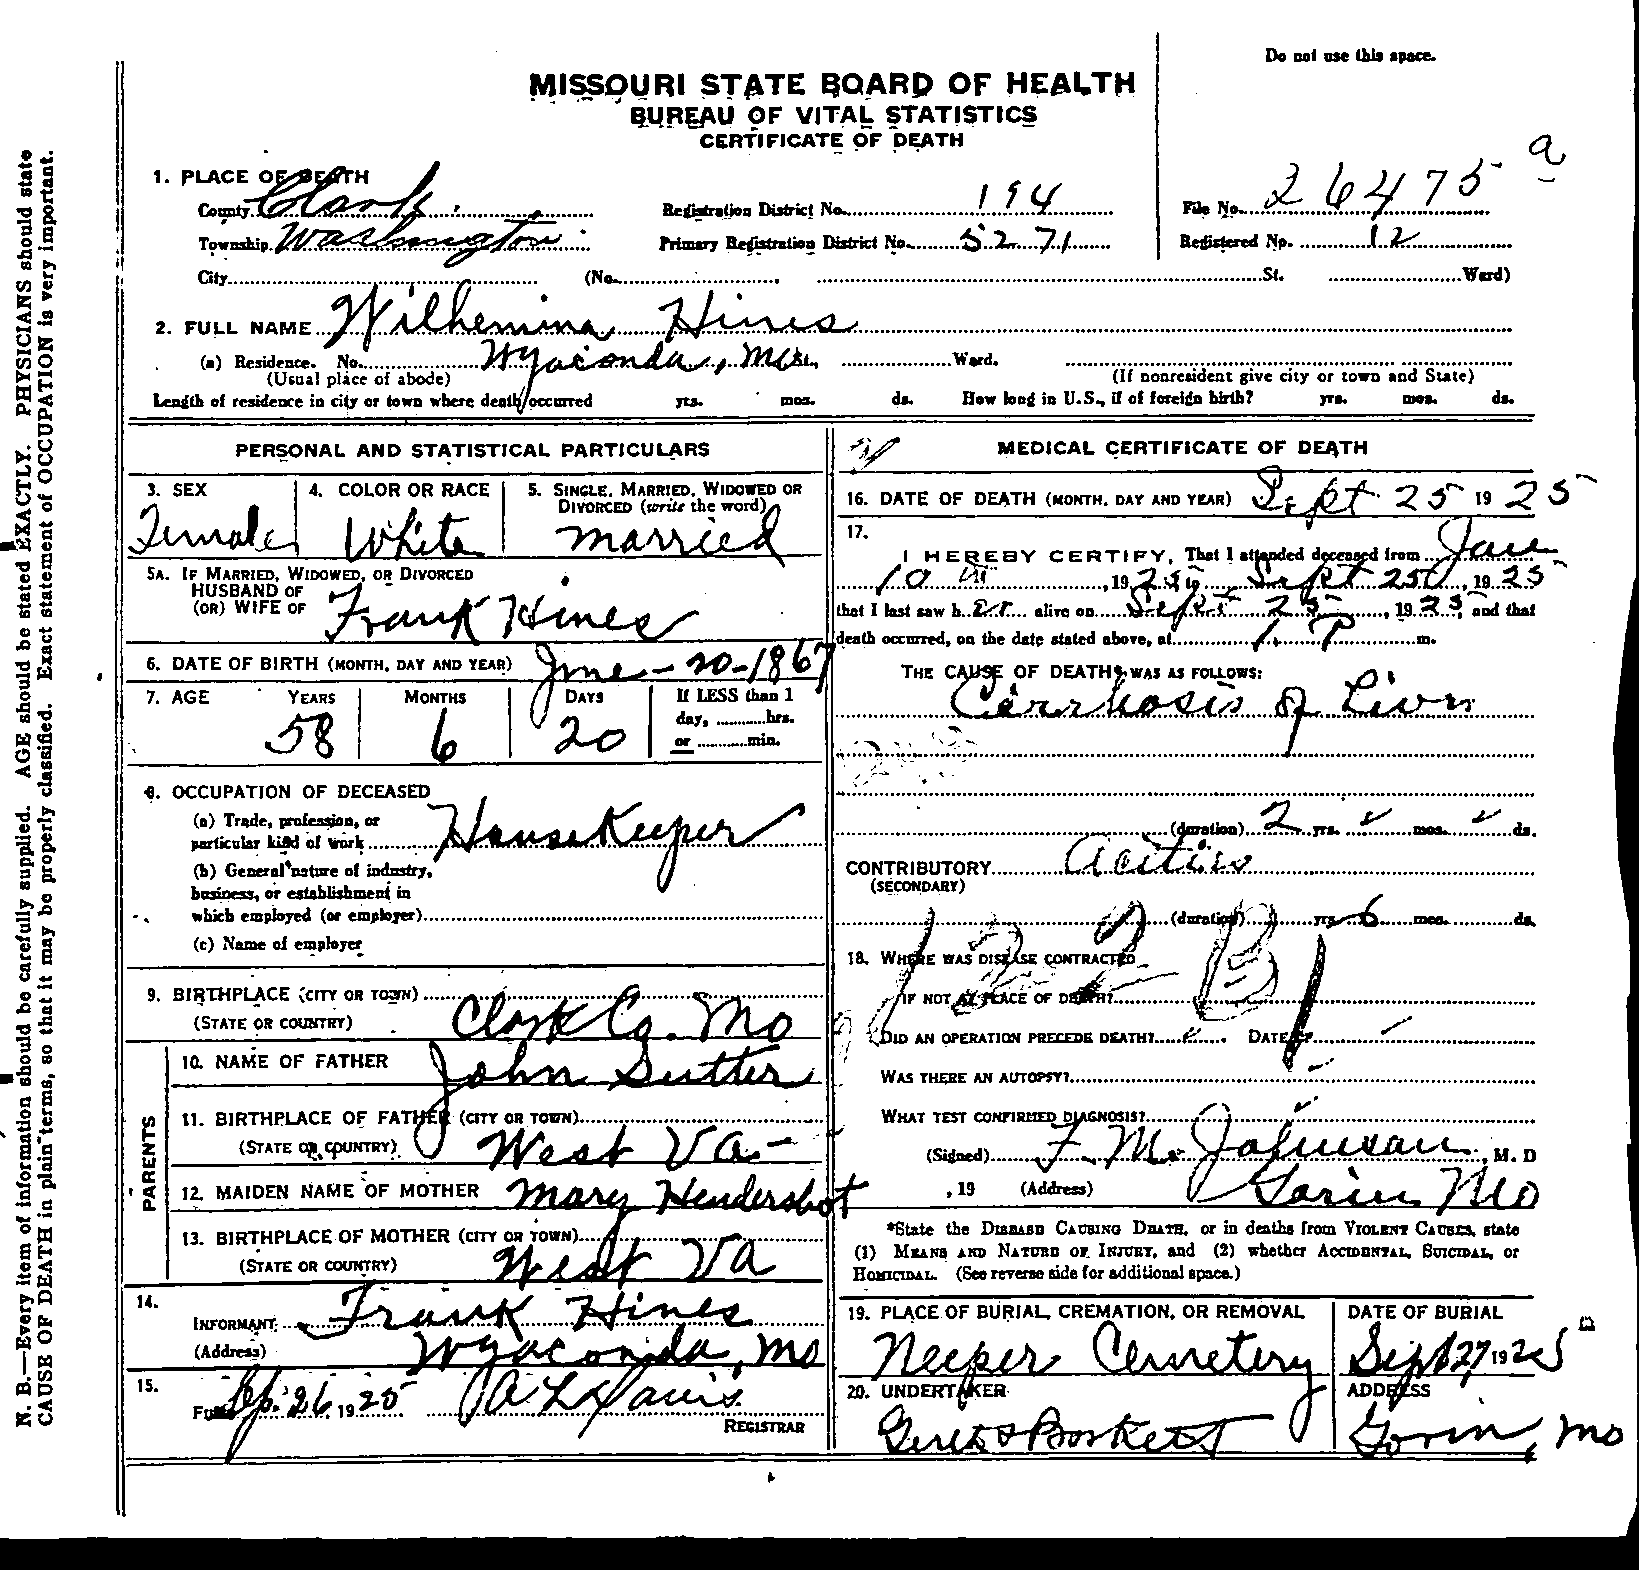 Do not use this space.
MISSOURI STATE BOARD OF HEALTH
BUREAU OF VITAL STATISTICS
CERTIFICATE OF DEATH
1. PLACE OF DEATH
County Clark Registration District No. 194 File No. 26475 a
Township Washington Primary Registration District No. 5271 Registered No. 12
City (No. St. Ward)
2. FULL NAME Wilhemina Hines
(a) Residence. No. Wyaconda, Mo St., Ward.
(Usual place of abode) (If nonresident give city or town and State)
Length of residence in city or town where death occurred yrs. mos. ds. How long in U.S., if of foreign birth? yrs. mos. ds.
PERSONAL AND STATISTICAL PARTICULARS
3. SEX 4. COLOR OR RACE 5. SINGLE, MARRIED, WIDOWED OR
DIVORCED (write the word)
Female White married
5A. IF MARRIED, WIDOWED, OR DIVORCED
HUSBAND OF
(OR) WIFE OF Frank Hines
6. DATE OF BIRTH (MONTH, DAY AND YEAR) June - 20 - 1867
7. AGE YEARS MONTHS DAYS If LESS than 1
day, hrs.
58 6 20 or min.
8. OCCUPATION OF DECEASED
(a) Trade, profession, or
particular kind of work HouseKeeper
(b) General nature of industry,
business, or establishment in
which employed (or employer)
(c) Name of employer
9. BIRTHPLACE (CITY OR TOWN)
(STATE OR COUNTRY) Clark Co. Mo
PARENTS
10. NAME OF FATHER John Sutter
11. BIRTHPLACE OF FATHER (CITY OR TOWN)
(STATE OR COUNTRY) West Va -
12. MAIDEN NAME OF MOTHER Mary Hendershot
13. BIRTHPLACE OF MOTHER (CITY OR TOWN)
(STATE OR COUNTRY) West Va
14.
INFORMANT Frank Hines
(Address) Wyaconda, Mo
15.
Filed Sep. 26, 1925 A L Davis
REGISTRAR
MEDICAL CERTIFICATE OF DEATH
16. DATE OF DEATH (MONTH, DAY AND YEAR) Sept 25 1925
17.
I HEREBY CERTIFY, That I attended deceased from Jan
10 th, 1925, to Sept 25, 1925
that I last saw her alive on Sept 25, 1925, and that
death occurred, on the date stated above, at 1 P m.
THE CAUSE OF DEATH* WAS AS FOLLOWS:
Cirrhosis of Liver
(duration) 2 yrs. mos. ds.
CONTRIBUTORY Acitis
(SECONDARY)
(duration) yrs. 6 mos. ds.
122 B
18. WHERE WAS DISEASE CONTRACTED
IF NOT AT PLACE OF DEATH?
DID AN OPERATION PRECEDE DEATH? DATE OF
WAS THERE AN AUTOPSY?
WHAT TEST CONFIRMED DIAGNOSIS?
(Signed) F. M. Johnson, M. D
, 19 (Address) Gorin Mo
*State the DISEASE CAUSING DEATH, or in deaths from VIOLENT CAUSES, state
(1) MEANS AND NATURE OF INJURY, and (2) whether ACCIDENTAL, SUICIDAL, or
HOMICIDAL. (See reverse side for additional space.)
19. PLACE OF BURIAL, CREMATION, OR REMOVAL DATE OF BURIAL
Neeper Cemetery Sept 27, 1925
20. UNDERTAKER ADDRESS
Gorin, Mo
N. B.—Every item of information should be carefully supplied. AGE should be stated EXACTLY. PHYSICIANS should state
CAUSE OF DEATH in plain terms, so that it may be properly classified. Exact statement of OCCUPATION is very important.